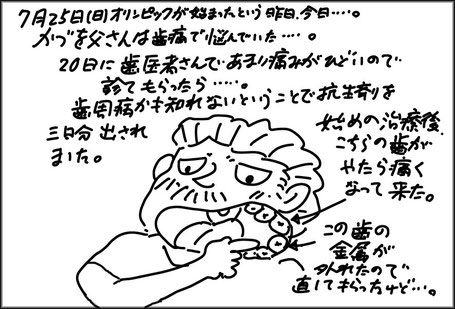 7月25日(日)オリンピックが始まったという昨日、今日‥‥。
かづを父さんは歯痛で悩んでいた‥‥。
20日に歯医者さんであまり痛みがひどいので
診てもらったら‥‥‥。
歯周病かも知れないということで抗生剤を
三日分出され
ました。
始めの治療後、
こちらの歯が
やたら痛く
なって来た。
この歯の
金属が
外れたので
直してもらったけど‥‥。